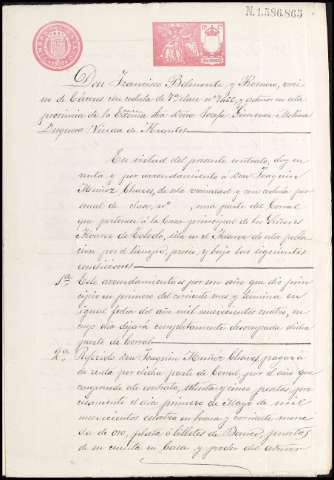 N.1.586.865
Don Francisco Belmonte y Roman, veci-
no de Cáceres con cedula de 7ª clase nº
provincia de la Exma Sra Doña Josefa Jimenez y Molina
Duquesa Viuda de Abrantes
En virtud del presente contrato, doy en
renta y por arrendamiento a Don Joaquin
Muñoz Chaves, de esta vecindad y con cedula per-
sonal de clase, nº , una parte del Corral
que pertenece a la Casa principal de los Señores
de Toledo, sita en el de esta pobla-
cion por el tiempo, precio, y bajo las siguientes
condiciones
1ª Este arrendamiento es por un año que dio prin-
cipio en primero del corriente mes y termina en
igual fecha del año mil novecientos cuatro, en
cuyo dia dejará completamente desocupada dicha
parte de Corral
2ª Referido Don Joaquin Muñoz Chaves, pagará
de renta por dicha parte de Corral, por el año que
comprende este contrato, setenta y cinco pesetas, pre-
cisamente el dia primero de Mayo de mil
novecientos cuatro en buena y corriente mone-
da de oro, plata ó billetes de Banco, puestas
de su cuenta en Casa y poder del